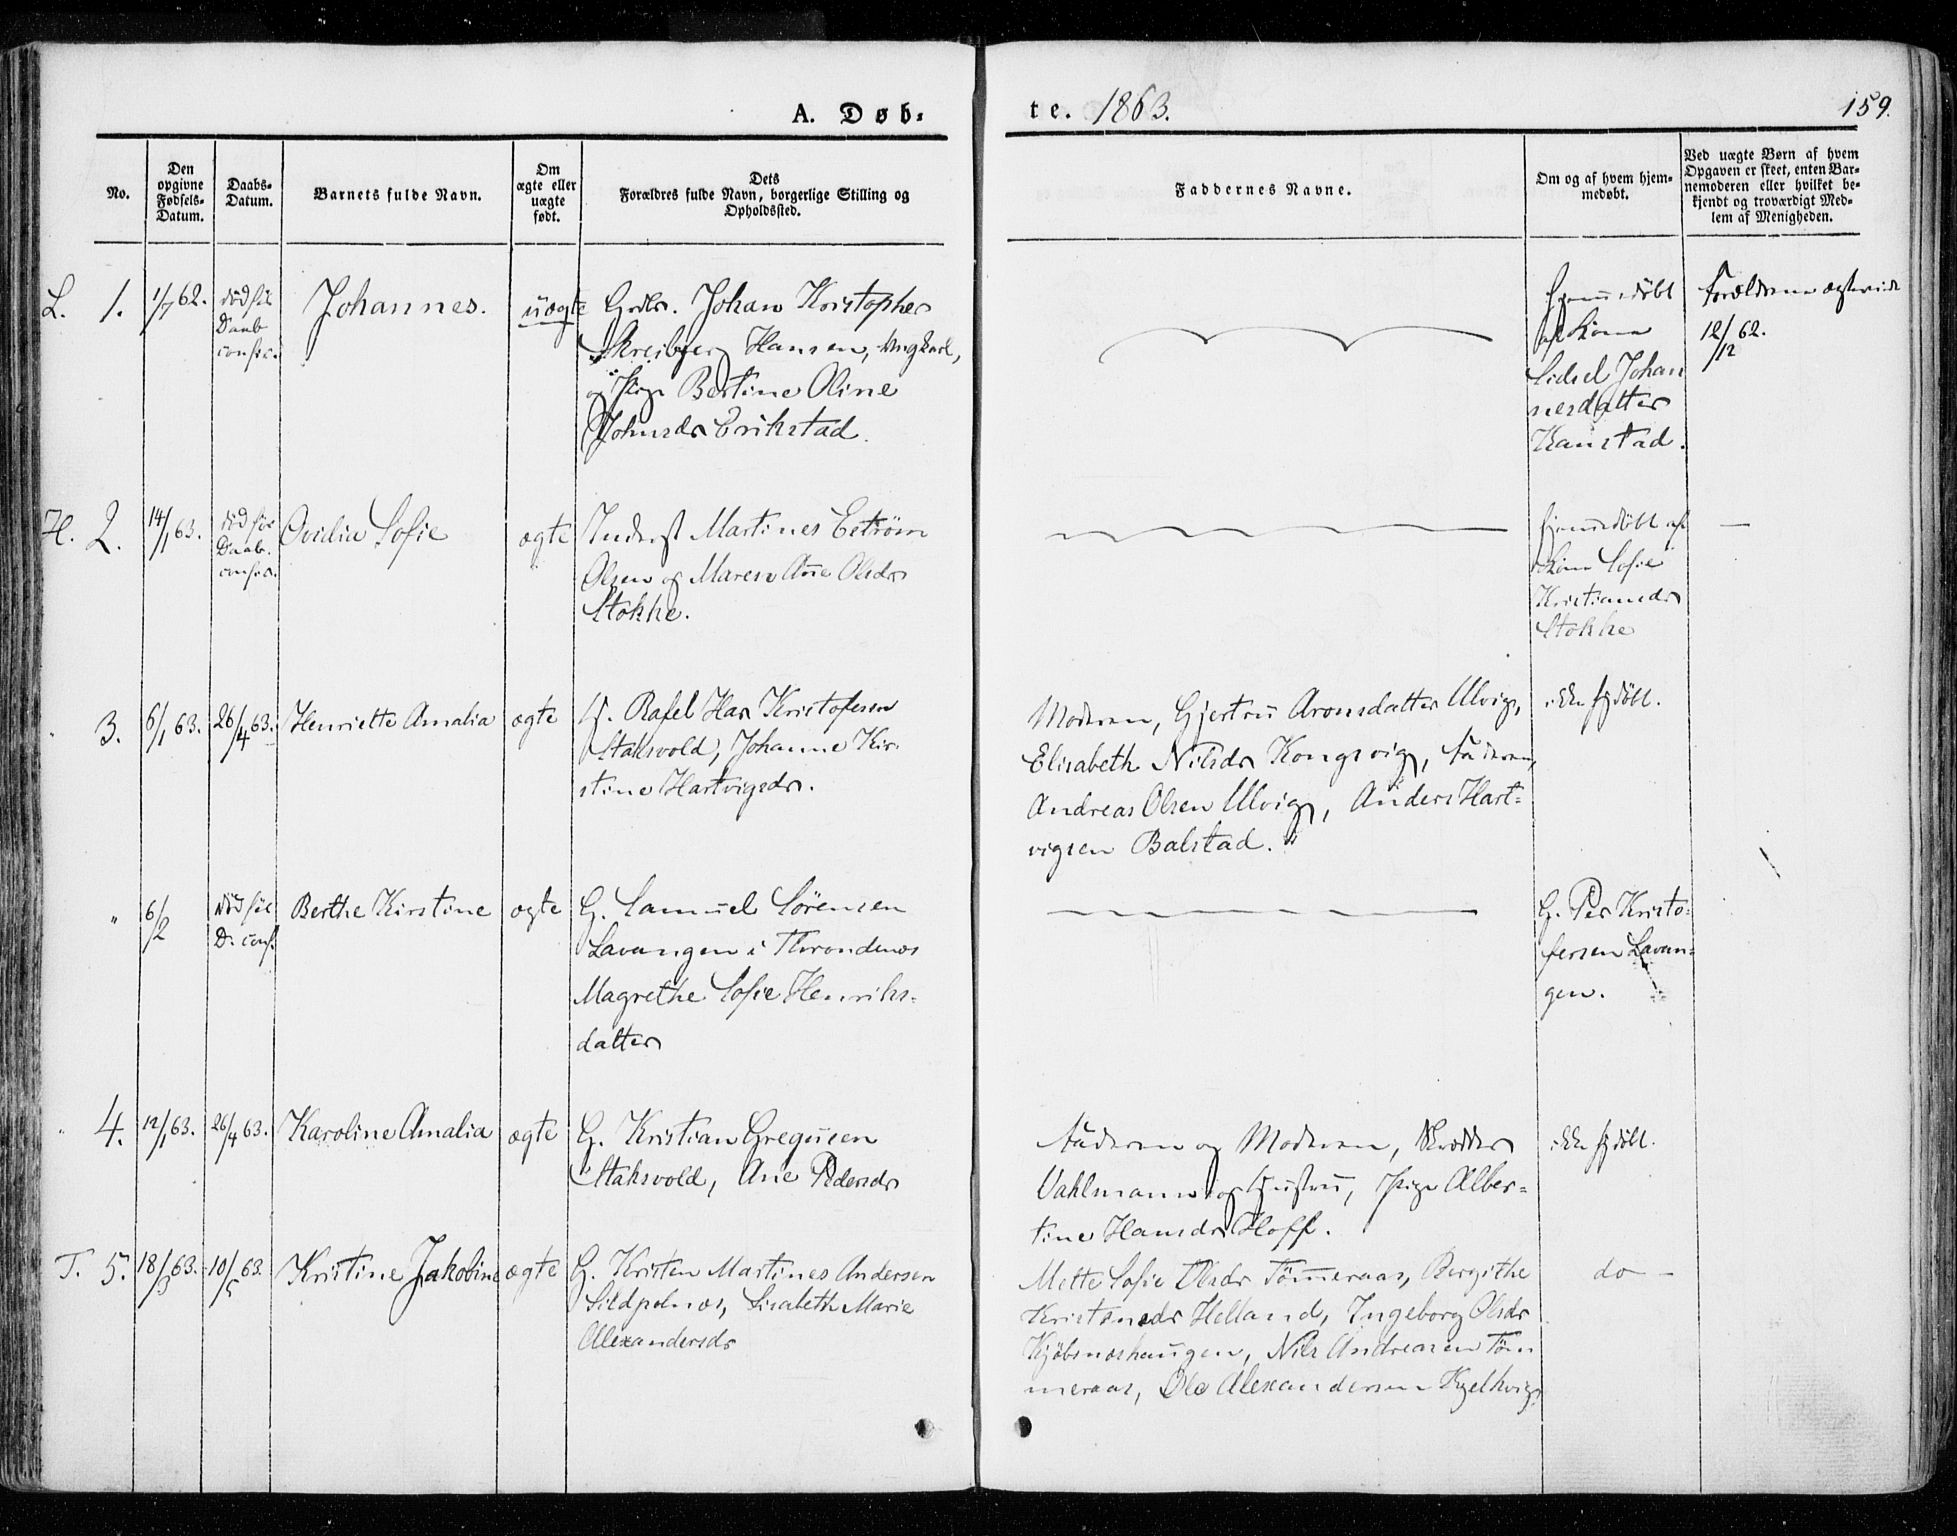 A. Døb-
te. 1863.
159.
No.
Den
opgivne
Fødsels-
Datum.
Daabs-
Datum.
Barnets fulde Navn.
Om
ægte eller
uægte
født.
Dets
Forældres fulde Navn, borgerlige Stilling og
Opholdssted.
Faddernes Navne.
Om og af hvem hjem-
medøbt.
Ved uægte Børn af hvem
Opgaven er skeet, enten Bar-
nemoderen eller hvilket be-
kjendt og troværdigt Med-
lem af Menigheden.
L. 1.
1/7 62.
død før
Daab
conf.
Johannes.
uægte
Johan Kristopher
Hansen, Ungkarl,
og Pige Bertine Oline
Johnsdr Erikstad.
hjemmedøbt
af Kone
Sidsel Johan
nesdatter
Kanstad.
Forældrene
12/12 62.
H. 2.
14/1 63.
død før
Daab.
Ovidia Sofie
ægte
Inderst Martines
Olsen og Maren Ane Olsdr
Stokke.
hjemmedøbt af
Kone Sofie
Kristiansdr
Stokke
—
" 3.
6/1 63.
26/4 63.
Henriette Amalia
ægte
G. Rafel Has Kristofersen
Staksvold, Johanne Kir-
stine Hartvigsdr.
Moderen, Gjertru Aronsdatter Ulvig,
Elisabeth Nilsdr Kongsvig, Faderen,
Andreas Olsen Ulvig, Anders Hart-
vigsen Balstad.
ikke hjdøbt.
"
6/2
død før
D. conf.
Berthe Kirstine
ægte
G. Samuel Sørensen
Lavangen i Throndenæs
Magrethe Sofie Henriks-
datter
G. Per Kristo-
fersen Lavan-
gen.
" 4.
12/1 63.
26/4 63.
Karoline Amalia
ægte
G. Kristian Gregusen
Staksvold, Ane Pedersdr
Faderen og Moderen, Skrædder
Vahlmann og Hustru, Pige Alber-
tine Hansdr Hoff.
ikke hjdøbt.
T. 5.
18/3 63.
10/5 63.
Kristine Jakobine
ægte
G. Kristen Martines Andersen
Sildpolnæs, Lisabeth Marie
Alexandersdr
Mette Sofie Olsdr Tømmeraas, Bergithe
Kristensdr Helland, Ingeborg Olsdr
Kjøbsnæshaugen, Nils Andreasen Tøm
meraas, Ole Alexandersen Kjelkvig
do —